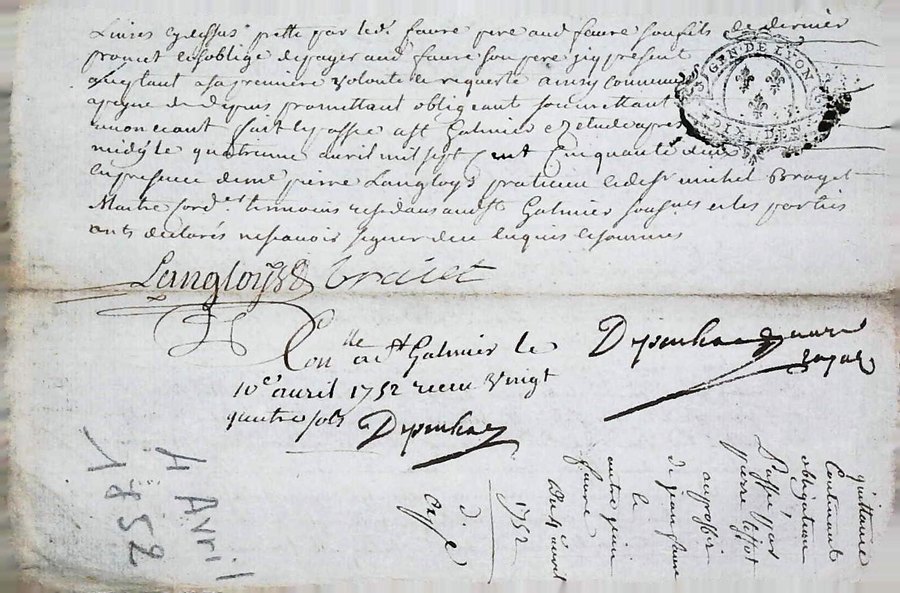 Livres cydessus prette par led. faure pere aud faure son fils ce dernier
promet et soblige de payer aud faure son pere icy present
acceptant a sa premiere volonté et requette ainsy comme
promettant obligeant soumettant
renonceant fait et passé a st Galmier et etude apres
midy le quatrieme avril mil sept cent cinquante deux
en presence de me pierre Langloys praticien et de sr michel Brayet
Maitre cord.er temoins residans aud st Galmier sousnes et les parties
onts declarés ne scavoir signer de ce enquis et sommés
Langloys Braiet
Con.lle a st Galmier le
10e avril 1752 receu vingt
quatre sols
GEN. DE LYON
quittance
Contenant
obligation
passée par
pierre
au proffit
de jean faure
et
autre jean
faure
Du 4 avril
1752
4 Avril
1852